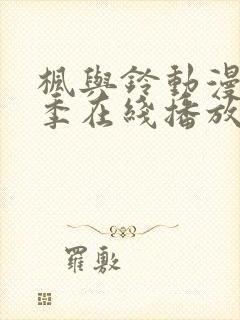 楓與鈴動漫
季在綫播放
羅敷